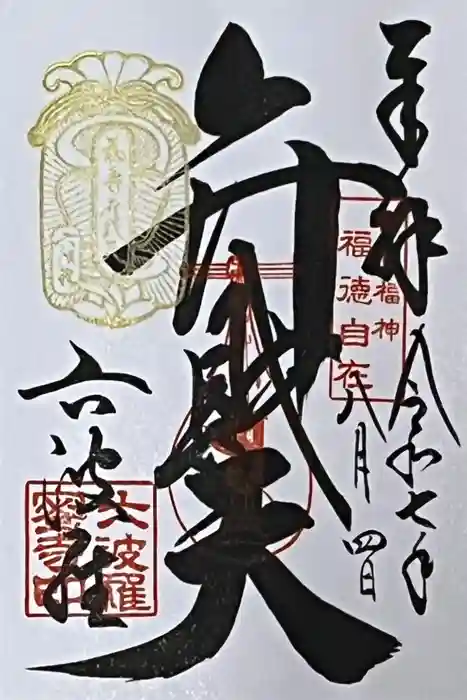 奉拝
令和七年
八月四日
福神
福徳自在
弁財天
六波羅
六波羅
蜜寺印